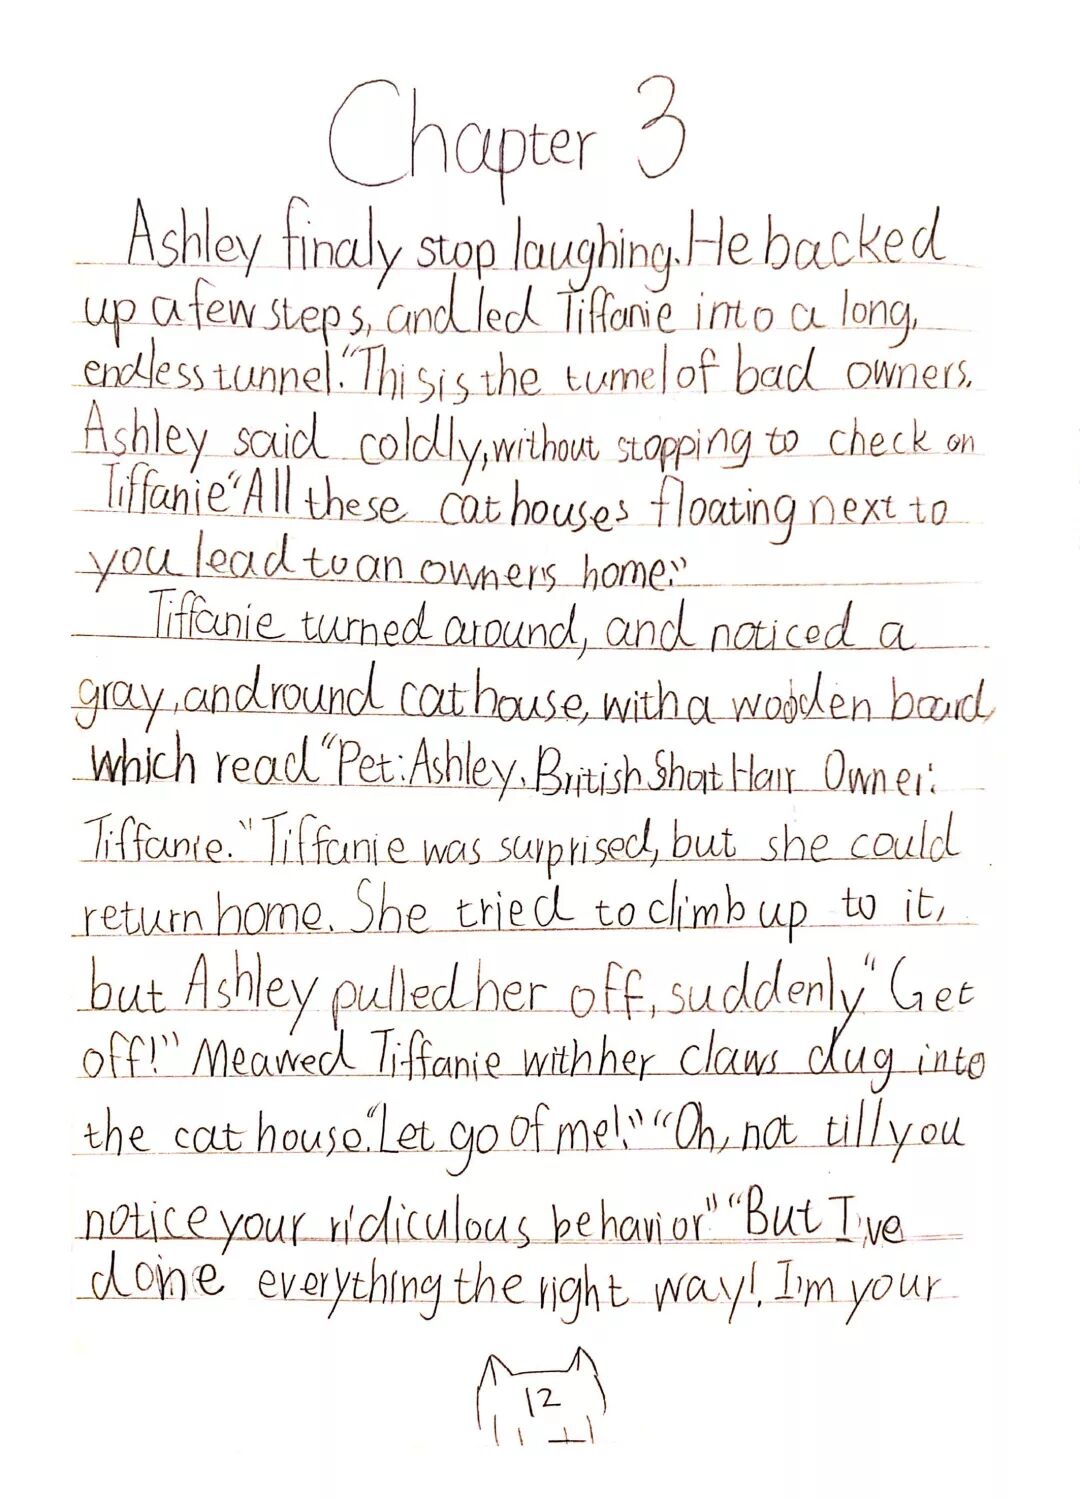 Chapter 3
Ashley finaly stop laughing. He backed
up a few steps, and led Tiffanie into a long,
endless tunnel. "This is the tunnel of bad owners.
Ashley said coldly, without stopping to check on
Tiffanie "All these cat houses floating next to
you lead to an owner's home."
Tiffanie turned around, and noticed a
gray, and round cat house, with a wooden board,
which read "Pet: Ashley. British Short Hair Owner:
Tiffanie." Tiffanie was surprised, but she could
return home. She tried to climb up to it,
but Ashley pulled her off, suddenly "Get
off!" Meawed Tiffanie with her claws dug into
the cat house. "Let go of me!." "Oh, not till you
notice your ridiculous behavior" "But I've
done everything the right way!. I'm your
12